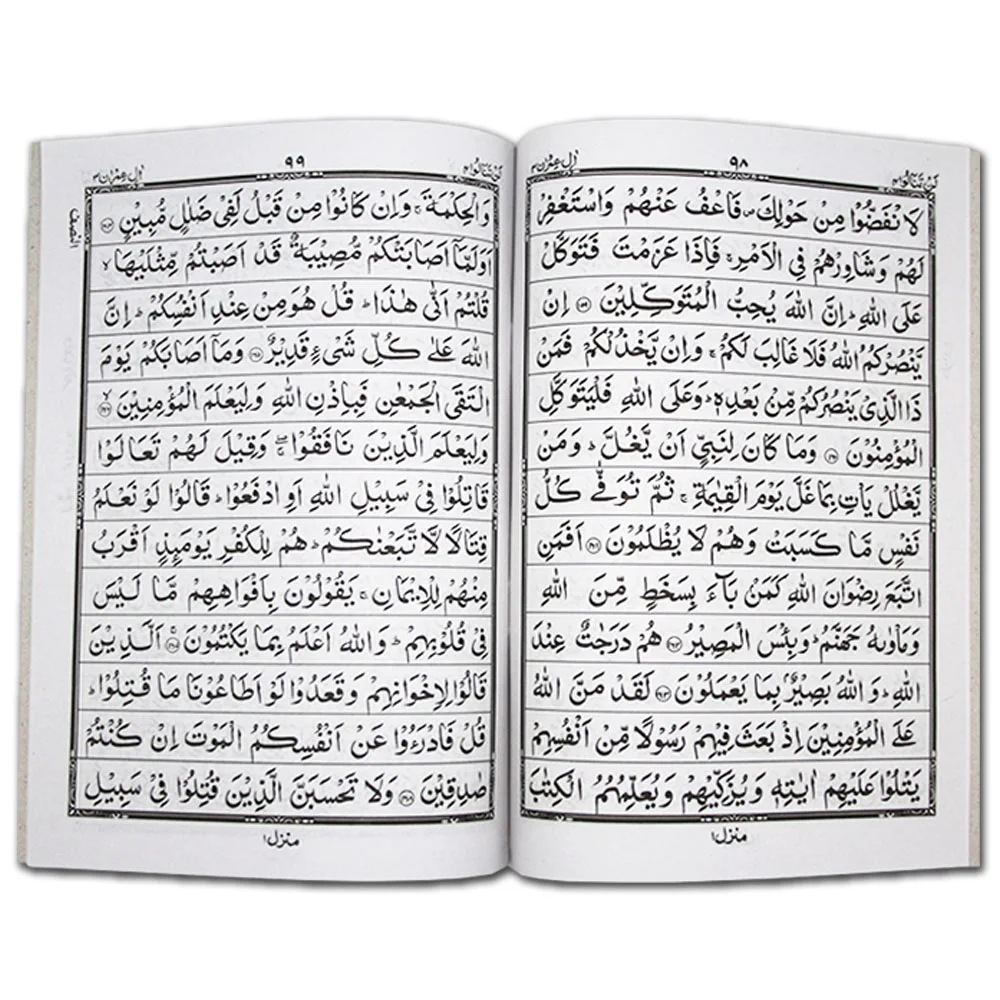 لن تنالوا ۴
۹۸
اٰل عمرٰن ۳
لَانْفَضُّوْا مِنْ حَوْلِكَ ۪ فَاعْفُ عَنْهُمْ وَاسْتَغْفِرْ
لَهُمْ وَشَاوِرْهُمْ فِی الْاَمْرِ ۚ فَاِذَا عَزَمْتَ فَتَوَكَّلْ
عَلَی اللّٰهِ ؕ اِنَّ اللّٰهَ یُحِبُّ الْمُتَوَكِّلِیْنَ ﴿۱۵۹﴾ اِنْ
یَّنْصُرْكُمُ اللّٰهُ فَلَا غَالِبَ لَكُمْ ۚ وَاِنْ یَّخْذُلْكُمْ فَمَنْ
ذَا الَّذِیْ یَنْصُرُكُمْ مِّنْۢ بَعْدِهٖ ؕ وَعَلَی اللّٰهِ فَلْیَتَوَكَّلِ
الْمُؤْمِنُوْنَ ﴿۱۶۰﴾ وَمَا كَانَ لِنَبِیٍّ اَنْ یَّغُلَّ ؕ وَمَنْ
یَّغْلُلْ یَاْتِ بِمَا غَلَّ یَوْمَ الْقِیٰمَةِ ۚ ثُمَّ تُوَفّٰی كُلُّ
نَفْسٍ مَّا كَسَبَتْ وَهُمْ لَا یُظْلَمُوْنَ ﴿۱۶۱﴾ اَفَمَنِ
اتَّبَعَ رِضْوَانَ اللّٰهِ كَمَنْۢ بَآءَ بِسَخَطٍ مِّنَ اللّٰهِ
وَمَاْوٰىهُ جَهَنَّمُ ؕ وَبِئْسَ الْمَصِیْرُ ﴿۱۶۲﴾ هُمْ دَرَجٰتٌ عِنْدَ
اللّٰهِ ؕ وَاللّٰهُ بَصِیْرٌۢ بِمَا یَعْمَلُوْنَ ﴿۱۶۳﴾ لَقَدْ مَنَّ اللّٰهُ
عَلَی الْمُؤْمِنِیْنَ اِذْ بَعَثَ فِیْهِمْ رَسُوْلًا مِّنْ اَنْفُسِهِمْ
یَتْلُوْا عَلَیْهِمْ اٰیٰتِهٖ وَیُزَكِّیْهِمْ وَیُعَلِّمُهُمُ الْكِتٰبَ
منزل ۱
لن تنالوا ۴
۹۹
اٰل عمرٰن ۳
وَالْحِكْمَةَ ۚ وَاِنْ كَانُوْا مِنْ قَبْلُ لَفِیْ ضَلٰلٍ مُّبِیْنٍ ﴿۱۶۴﴾
اَوَلَمَّاۤ اَصَابَتْكُمْ مُّصِیْبَةٌ قَدْ اَصَبْتُمْ مِّثْلَیْهَا ۙ
قُلْتُمْ اَنّٰی هٰذَا ؕ قُلْ هُوَ مِنْ عِنْدِ اَنْفُسِكُمْ ؕ اِنَّ
اللّٰهَ عَلٰی كُلِّ شَیْءٍ قَدِیْرٌ ﴿۱۶۵﴾ وَمَاۤ اَصَابَكُمْ یَوْمَ
الْتَقَی الْجَمْعٰنِ فَبِاِذْنِ اللّٰهِ وَلِیَعْلَمَ الْمُؤْمِنِیْنَ ﴿۱۶۶﴾ ۙ
وَلِیَعْلَمَ الَّذِیْنَ نَافَقُوْا ۖۚ وَقِیْلَ لَهُمْ تَعَالَوْا
قَاتِلُوْا فِیْ سَبِیْلِ اللّٰهِ اَوِ ادْفَعُوْا ؕ قَالُوْا لَوْ نَعْلَمُ
قِتَالًا لَّا تَّبَعْنٰكُمْ ؕ هُمْ لِلْكُفْرِ یَوْمَىِٕذٍ اَقْرَبُ
مِنْهُمْ لِلْاِیْمَانِ ۚ یَقُوْلُوْنَ بِاَفْوَاهِهِمْ مَّا لَیْسَ
فِیْ قُلُوْبِهِمْ ؕ وَاللّٰهُ اَعْلَمُ بِمَا یَكْتُمُوْنَ ﴿۱۶۷﴾ ۚ اَلَّذِیْنَ
قَالُوْا لِاِخْوَانِهِمْ وَقَعَدُوْا لَوْ اَطَاعُوْنَا مَا قُتِلُوْا ؕ
قُلْ فَادْرَءُوْا عَنْ اَنْفُسِكُمُ الْمَوْتَ اِنْ كُنْتُمْ
صٰدِقِیْنَ ﴿۱۶۸﴾ وَلَا تَحْسَبَنَّ الَّذِیْنَ قُتِلُوْا فِیْ سَبِیْلِ
النصف
منزل ۱